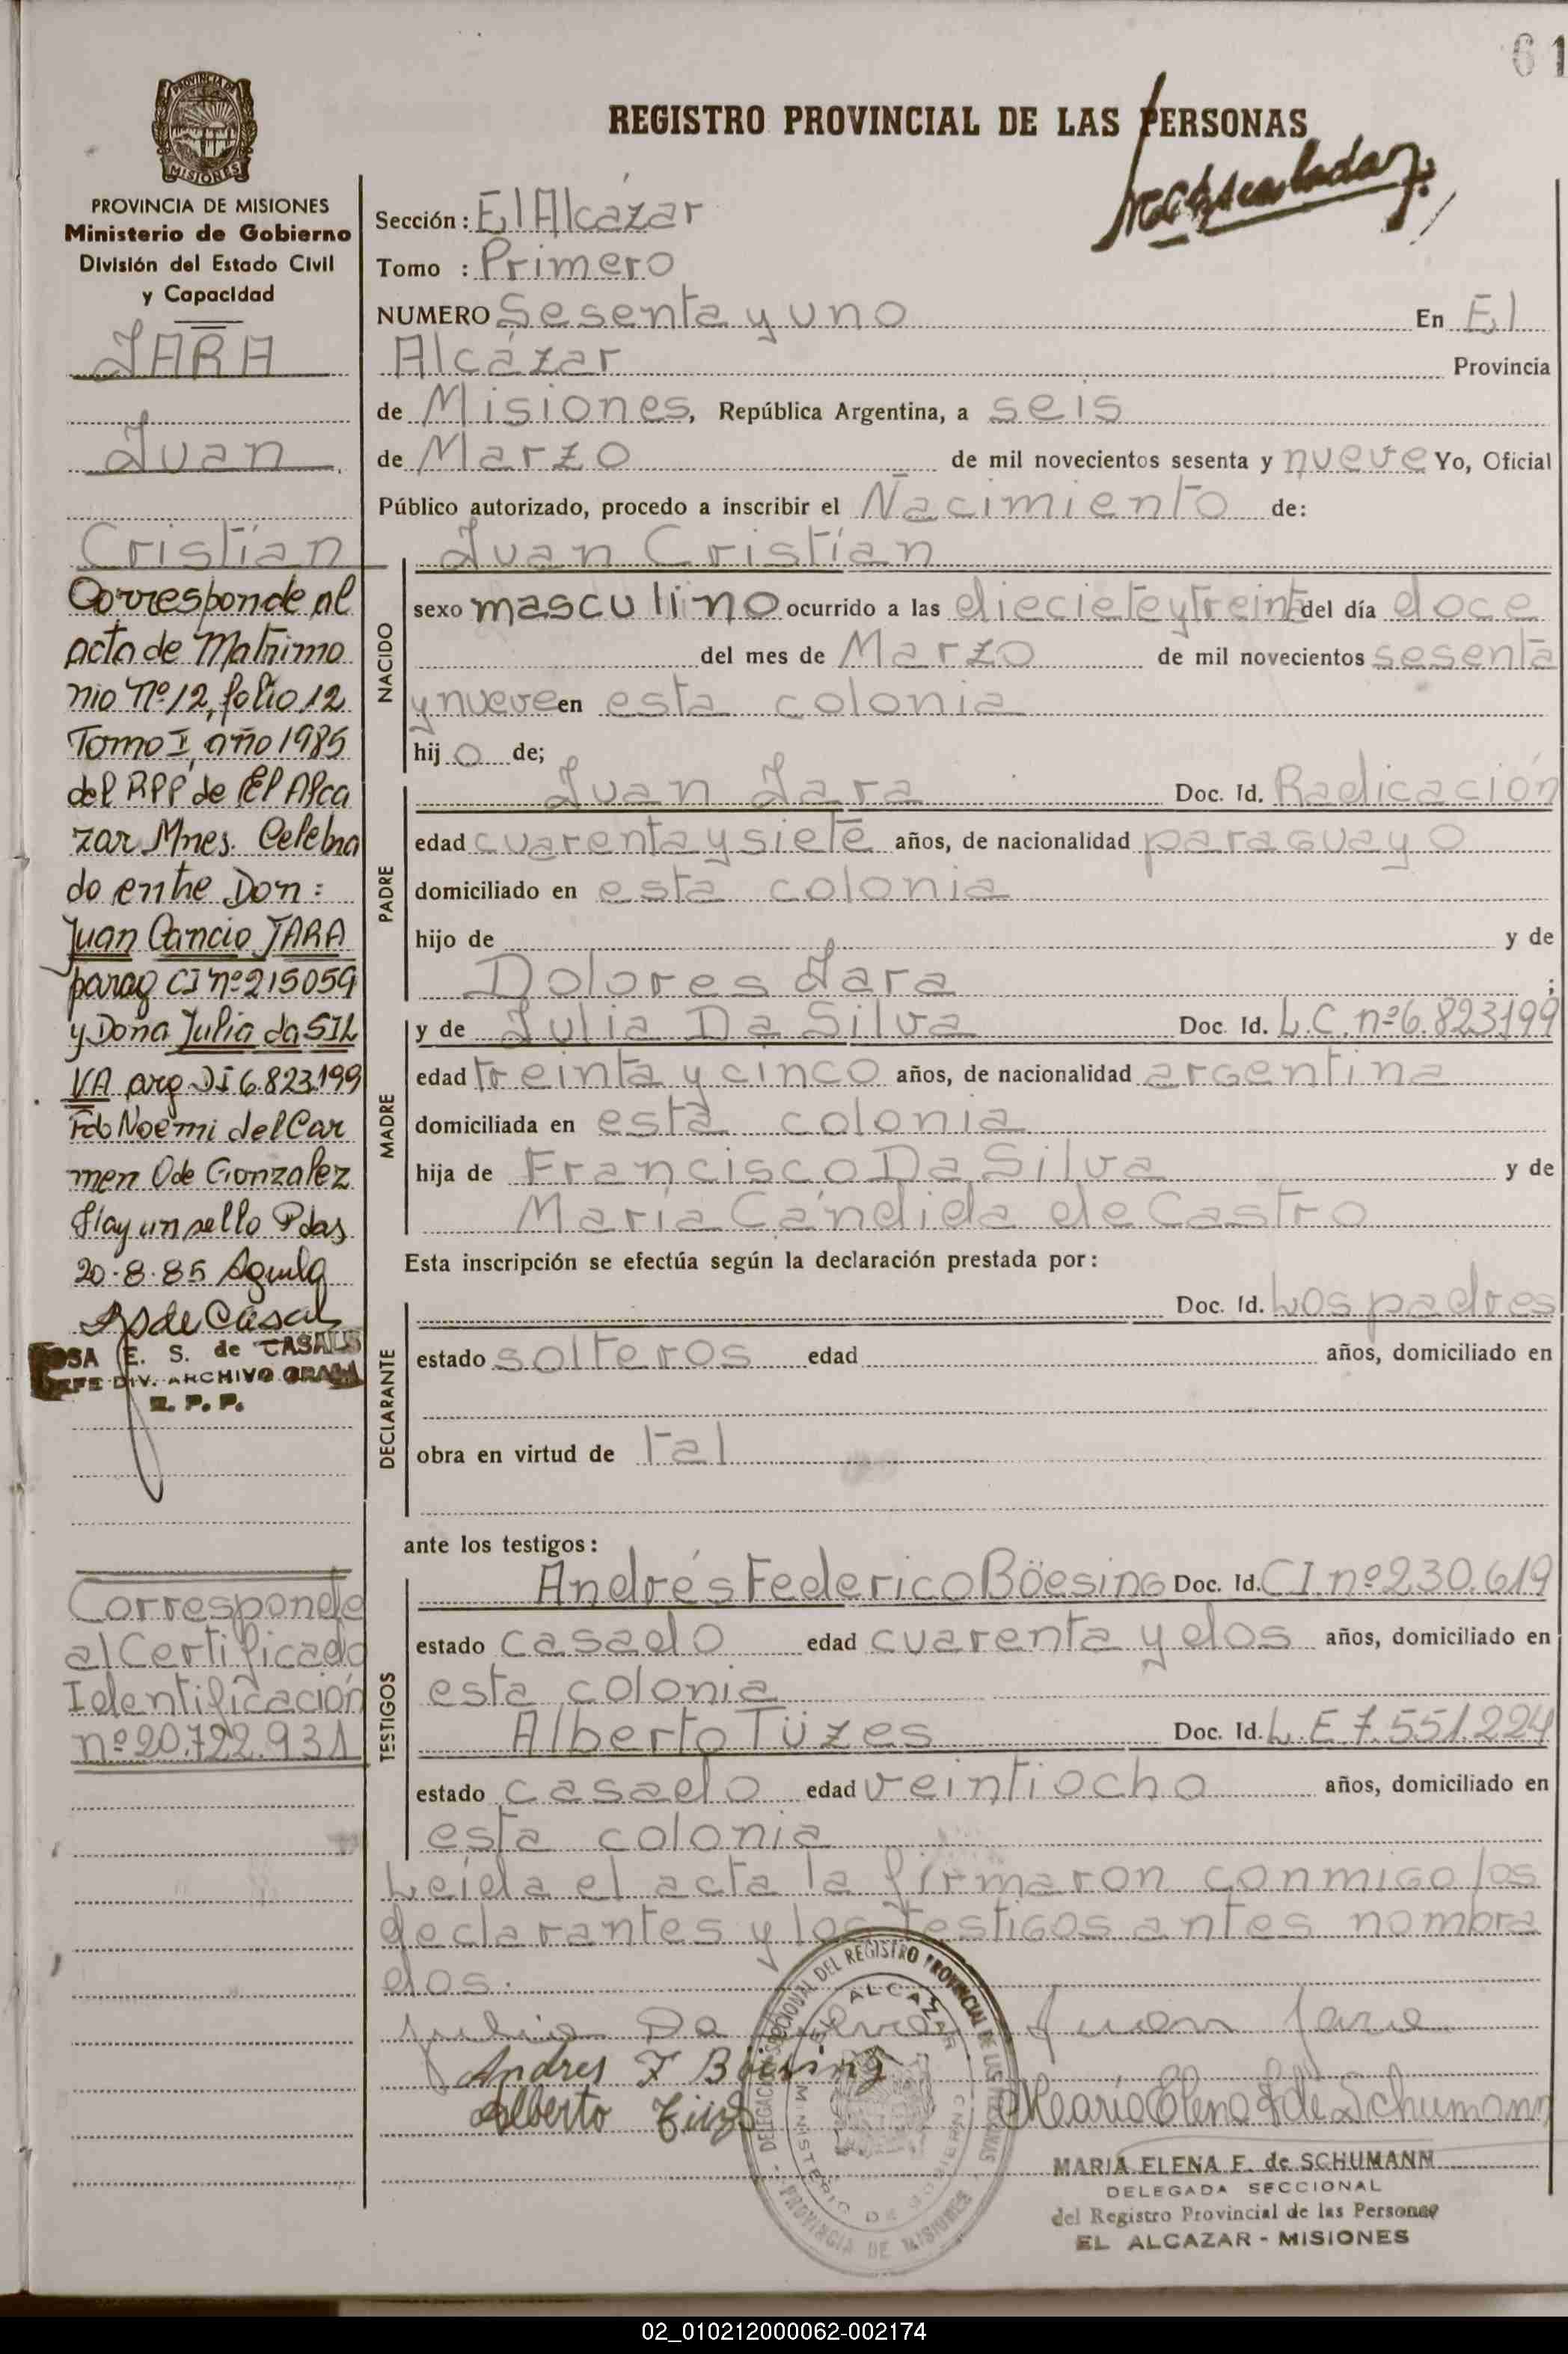 61
REGISTRO PROVINCIAL DE LAS PERSONAS
PROVINCIA DE MISIONES
Ministerio de Gobierno
División del Estado Civil
y Capacidad
JARA
Juan
Cristían
Corresponde al
acta de Matrimo
nio Nº 12, folio 12
Tomo I, año 1985
del RPP de El Alca
zar Mnes. Celebra
do entre Don:
Juan Cancio JARA
parag CI nº 215059
y Doña Julia da SIL
VA arg DI 6.823.199
Fdo Noemi del Car
men O de Gonzalez
Hay un sello Pdas
20-8-85
E. S. de CASALS
DIV. ARCHIVO GRAL
R. P. P.
Corresponde
al Certificado
Identificación
nº 20.722.931
Sección: El Alcázar
Tomo : Primero
NUMERO Sesenta y uno En El
Alcázar Provincia
de Misiones, República Argentina, a seis
de Marzo de mil novecientos sesenta y nueve Yo, Oficial
Público autorizado, procedo a inscribir el Nacimiento de:
Juan Cristían
NACIDO
sexo masculino ocurrido a las diecieteytreinta del día doce
del mes de Marzo de mil novecientos sesenta
y nueve en esta colonia
hijo de;
PADRE
Juan Jara Doc. Id. Radicación
edad cuarenta y siete años, de nacionalidad paraguayo
domiciliado en esta colonia
hijo de y de
Dolores Jara ;
MADRE
y de Julia Da Silva Doc. Id. L.C. nº 6.823.199
edad treinta y cinco años, de nacionalidad argentina
domiciliada en esta colonia
hija de Francisco Da Silva y de
María Cándida de Castro
Esta inscripción se efectúa según la declaración prestada por:
DECLARANTE
Doc. Id. Los padres
estado solteros edad años, domiciliado en
obra en virtud de tal
ante los testigos:
TESTIGOS
Andrés Federico Böesing Doc. Id. CI. nº 230.619
estado casado edad cuarenta y dos años, domiciliado en
esta colonia
Alberto Tüzes Doc. Id. L.E 7.551.224
estado casado edad veintiocho años, domiciliado en
esta colonia
Leída el acta la firmaron conmigo los
declarantes y los testigos antes nombra
dos.
Julia Da Silva Juan Jara
Andres F Bösing
Alberto
Maria Elena F de Schumann
DELEGACION SECCIONAL DEL REGISTRO PROVINCIAL DE LAS PERSONAS
EL ALCAZAR
MINISTERIO DE GOBIERNO
PROVINCIA DE MISIONES
MARIA ELENA F. de SCHUMANN
DELEGADA SECCIONAL
del Registro Provincial de las Personas
EL ALCAZAR - MISIONES
02_010212000062-002174